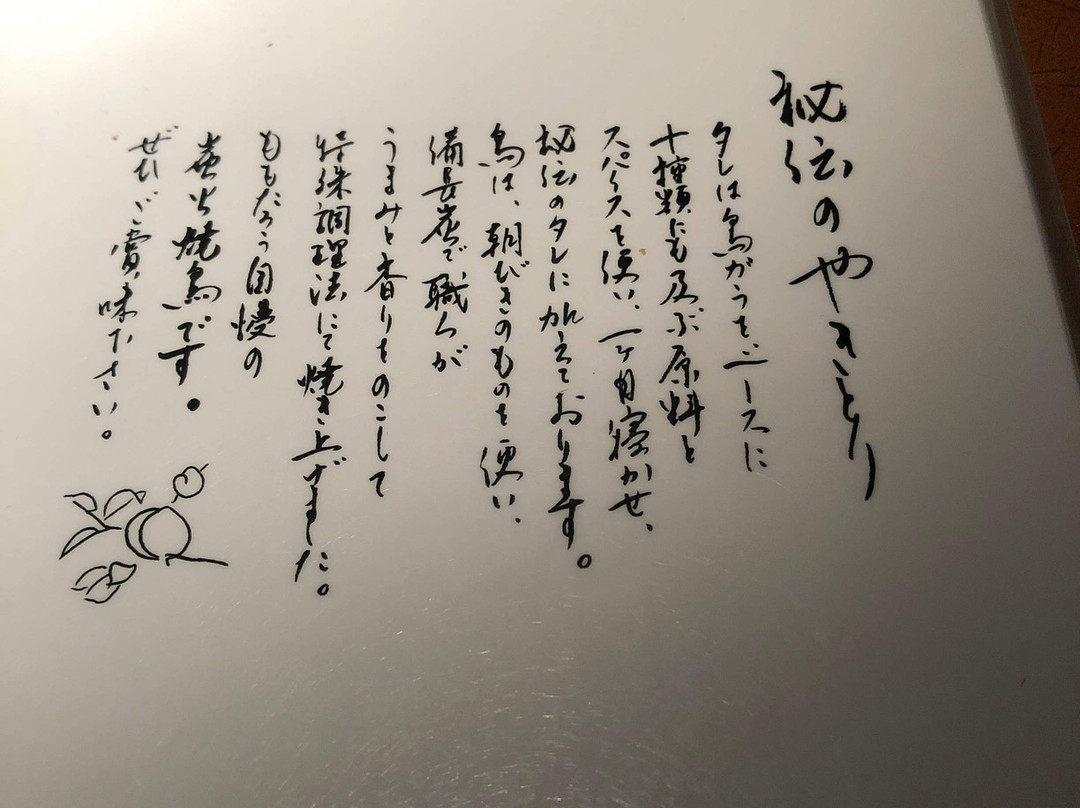 秘伝のやきとり
タレは鳥がらをベースに
十種類にも及ぶ原料と
スパイスを使い、一ヶ月寝かせ、
秘伝のタレに加えております。
鳥は、朝びきのものを使い、
備長炭で、職人が
うまみと香りをのこして
特殊調理法にて焼き上げました。
ももたろう自慢の
炭火焼鳥です。
ぜひ、ご賞味下さい。